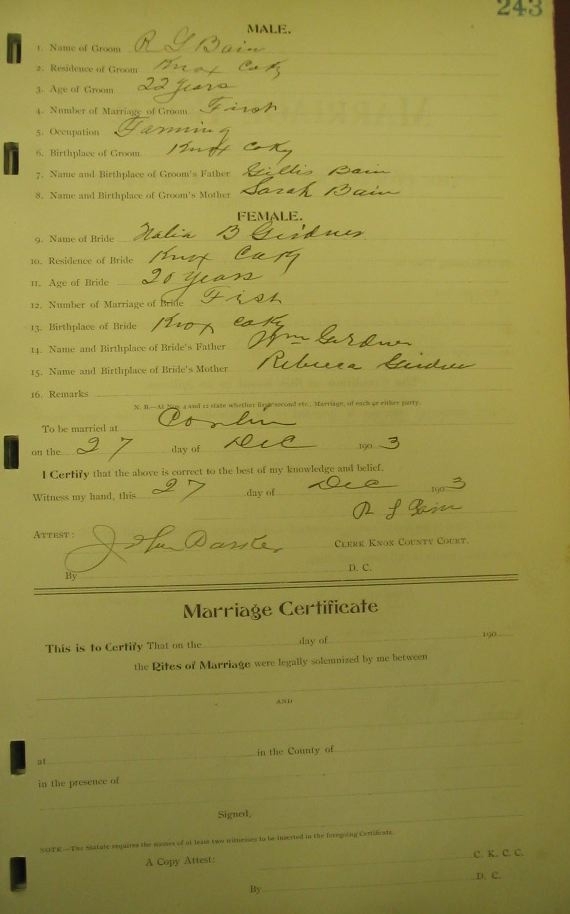 243
MALE.
1. Name of Groom R G Bain
2. Residence of Groom Knox Co Ky
3. Age of Groom 22 years
4. Number of Marriage of Groom First
5. Occupation Farming
6. Birthplace of Groom Knox Co Ky
7. Name and Birthplace of Groom's Father Gillis Bain
8. Name and Birthplace of Groom's Mother Sarah Bain
FEMALE.
9. Name of Bride B Girdner
10. Residence of Bride Knox Co Ky
11. Age of Bride 20 years
12. Number of Marriage of Bride First
13. Birthplace of Bride Knox Co Ky
14. Name and Birthplace of Bride's Father Wm Girdner
15. Name and Birthplace of Bride's Mother Rebecca Girdner
16. Remarks
N. B.—At Nos 4 and 12 state whether first, second etc., Marriage, of each or either party.
To be married at Corbin
on the 27 day of Dec 1903
I Certify that the above is correct to the best of my knowledge and belief.
Witness my hand, this 27 day of Dec 1903
Bain
ATTEST: CLERK KNOX COUNTY COURT.
By D. C.
Marriage Certificate
This is to Certify That on the day of 190
the Rites of Marriage were legally solemnized by me between
AND
at in the County of
in the presence of
Signed,
NOTE—The Statute requires the names of at least two witnesses to be inserted in the foregoing Certificate.
A Copy Attest: C. K. C. C.
By D. C.